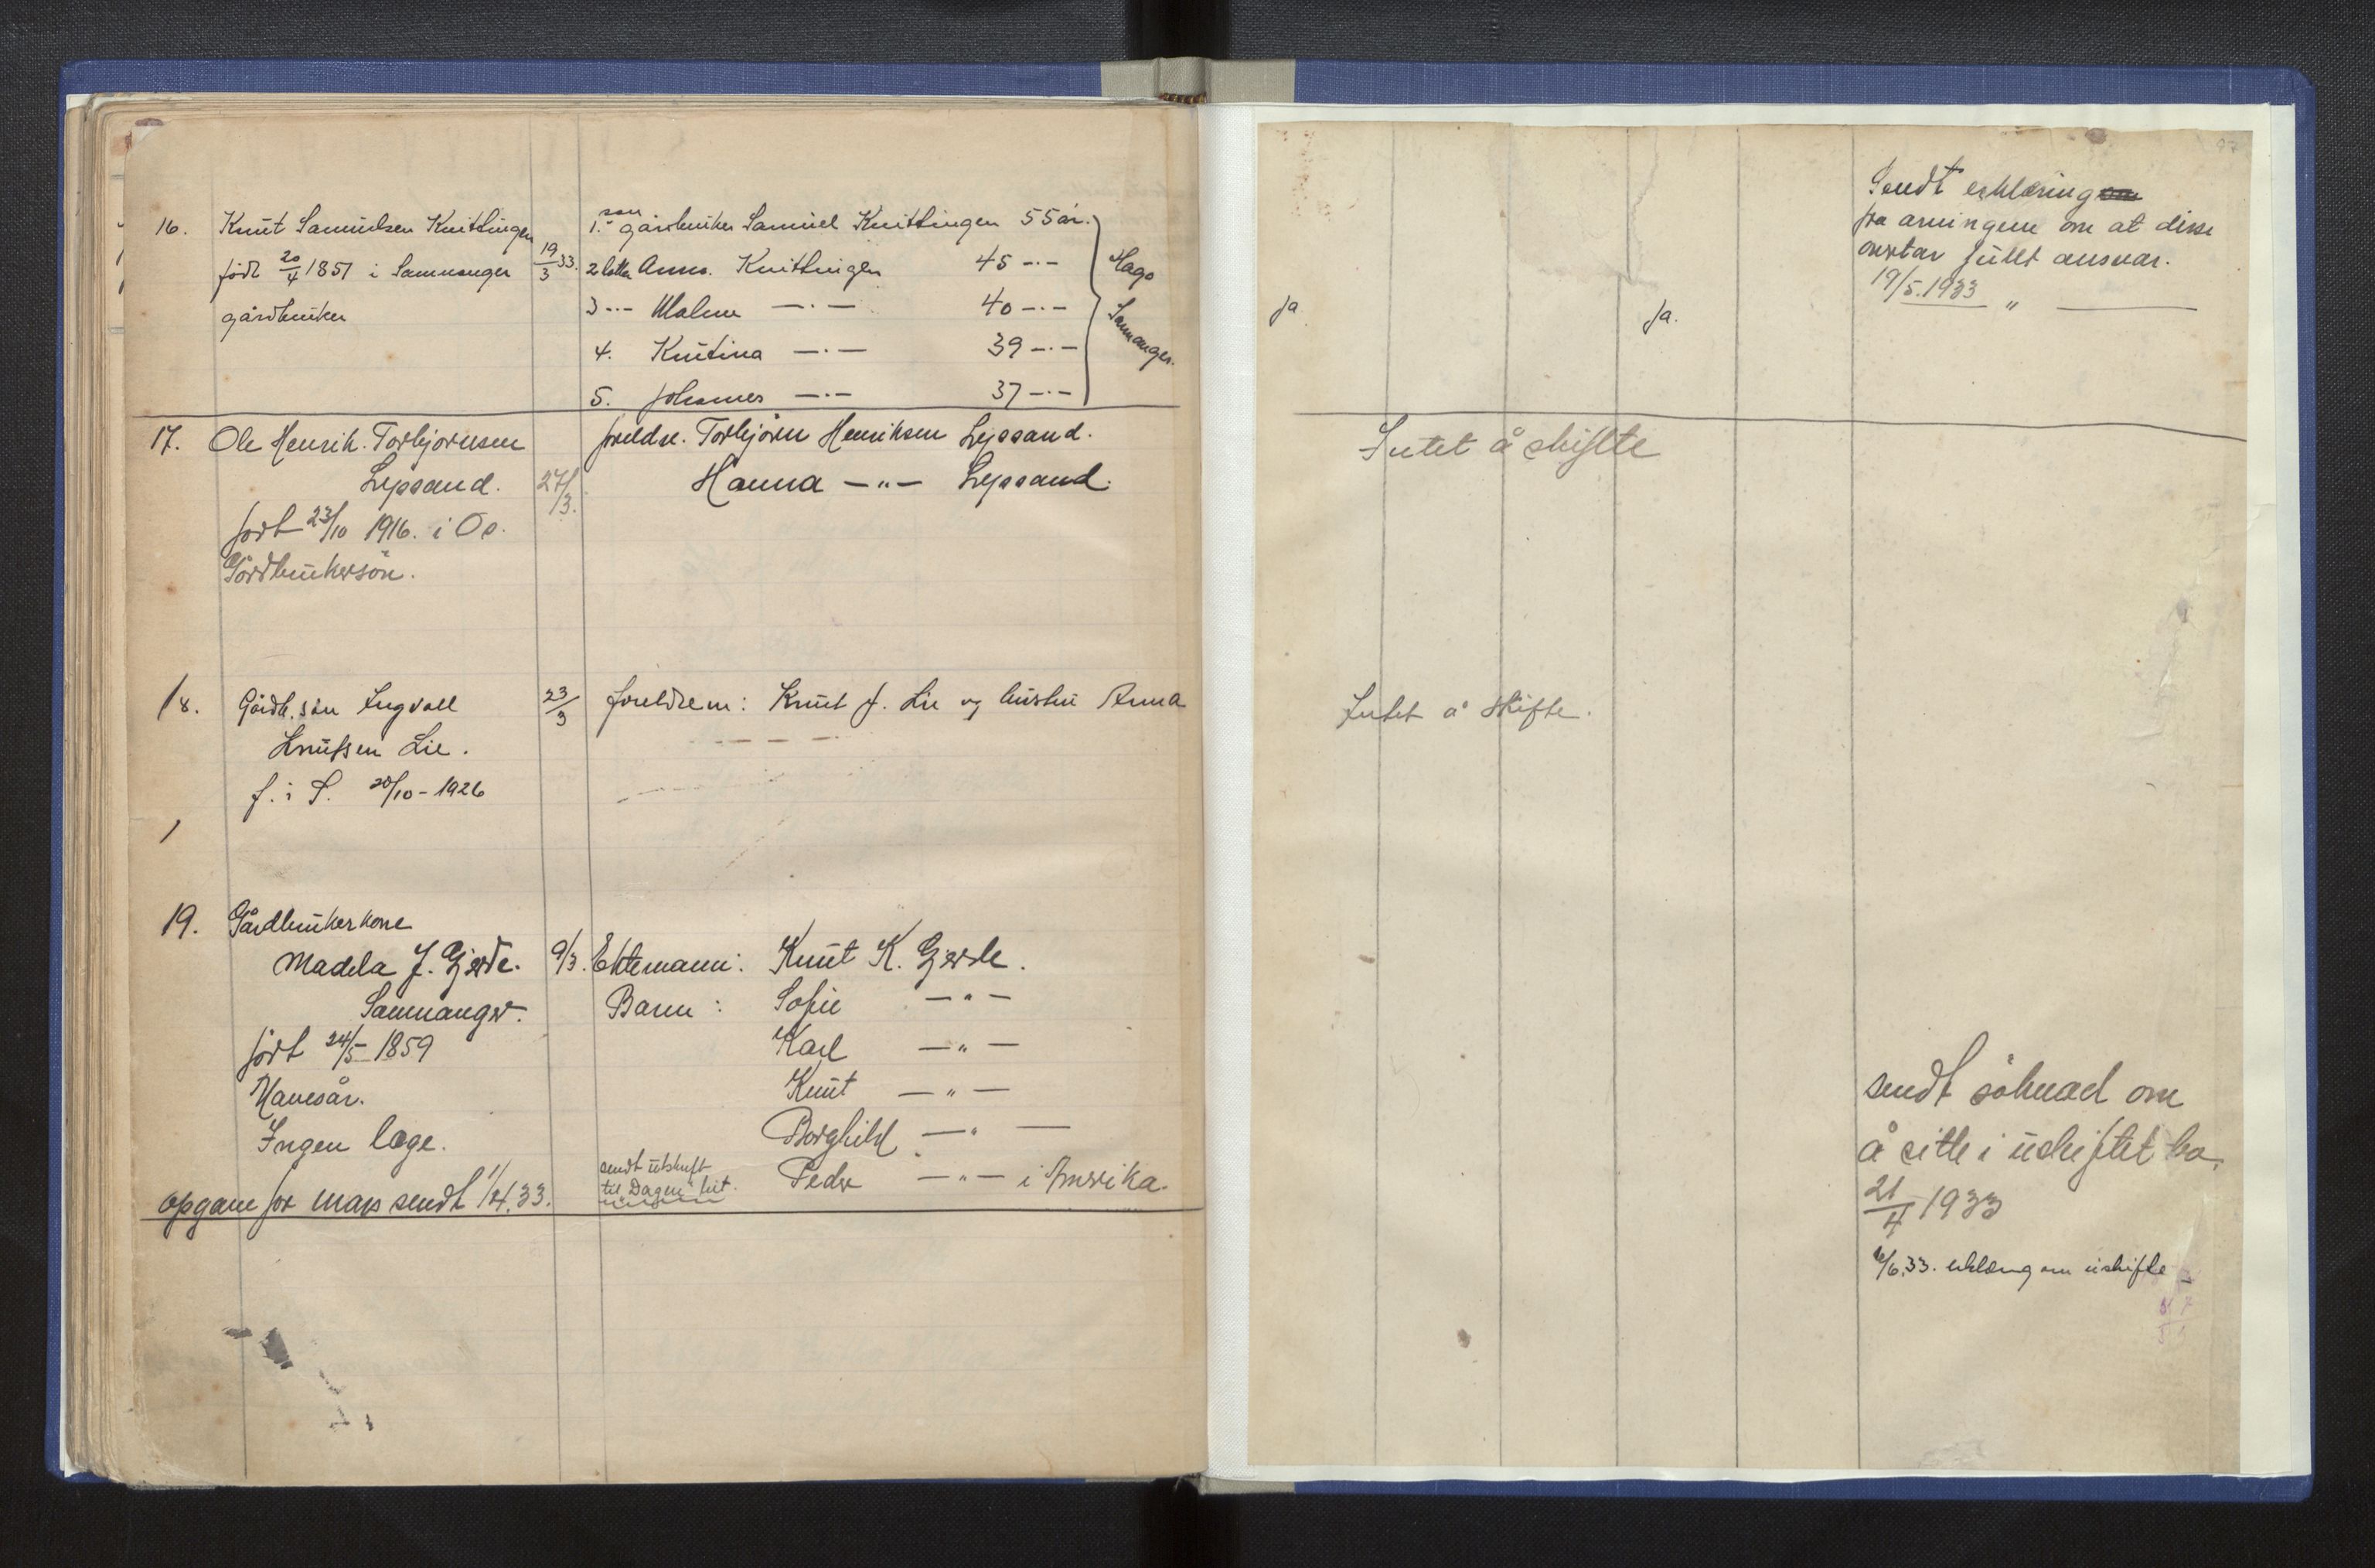 16. Knut Samuelsen Knitlingen
født 20/4 1851 i Samnanger
gårdbruker
19/3 33.
1. søn gårdbruker Samuel Knitlingen 55 år.
2 datter Anna. Knitlingen 45 -.-
3 -.- Malene -.- 40 -.-
4. Knutina -.- 39 -.-
5. Johannes -.- 37 -.-
Hago
Samnanger.
17. Ole Henrik. Torbjørnsen
Lepsand.
født 23/10 1916. i Os.
Gårdbrukersøn.
27/3.
foreldre. Torbjørn Henriksen Lepsand.
Hanna -"- Lepsand.
18. Gårdb. søn Ingvall
Knutsen Lie.
f. i S. 20/10 - 1926
23/3
foreldrem: Knut J. Lie og hustru Anna
19. Gårdbrukerkone
Madela J. Gjerde.
Samnanger.
født 24/5 1859
Navesår.
Ingen læge.
opgave for mars sendt 1/4.33.
9/3.
Ektemann: Knut K. Gjerde.
Barn: Sofie -"-
Karl -"-
Knut -"-
Borghild -"-
Peder -"- i Amerika.
sendt utskrift
til "Dagen" hit.
ja
ja.
Sendt erklæring
fra arvingene om at disse
overtar fullt ansvar.
19/5.1933 " 
Intet å skifte
Intet å skifte.
sendt søknad om
å sitte i uskiftet bo.
21/4 1933
6/6.33. erklæring om uskifte